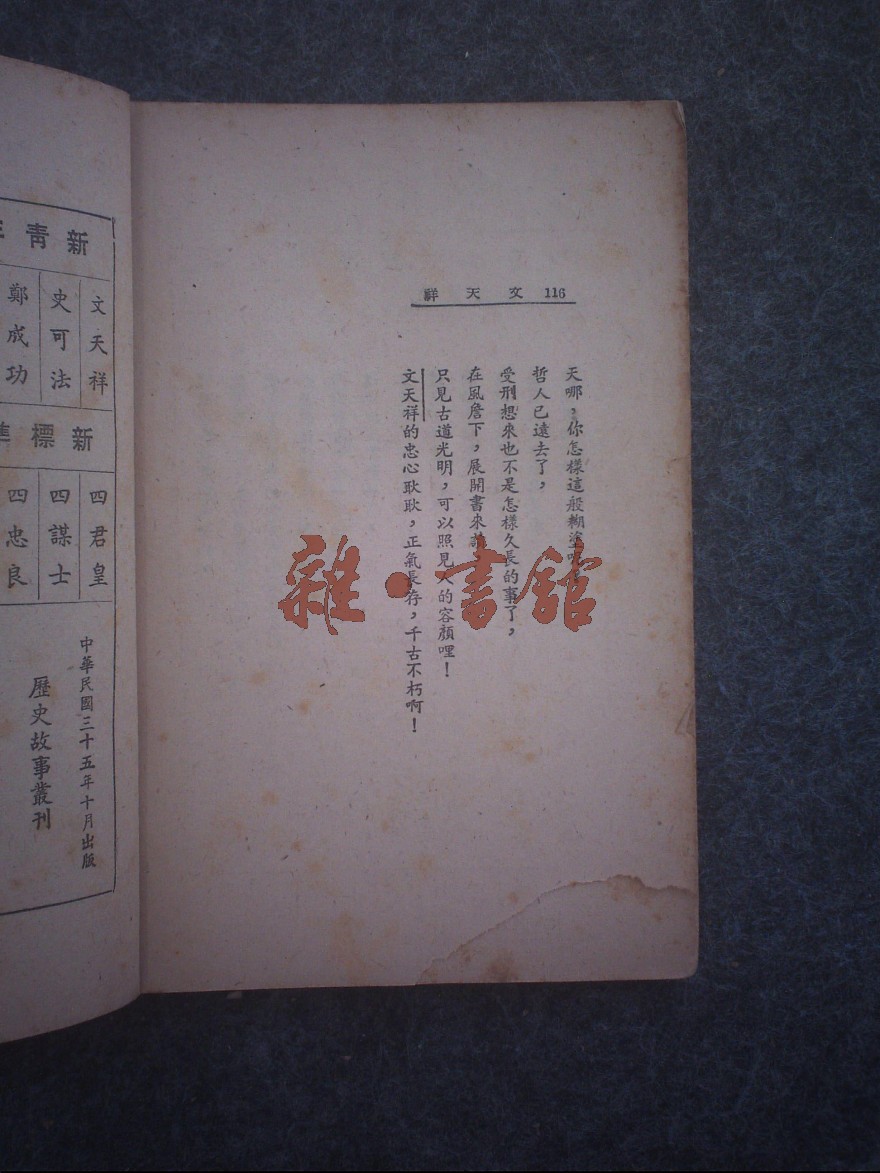 116 文天祥
天哪，你怎樣這般糊塗
哲人已遠去了，
受刑想來也不是怎樣久長的事了，
在風詹下，展開書來
只見古道光明，可以照見人的容顏哩！
文天祥的忠心耿耿，正氣長存，千古不朽啊！
新青
文天祥
史可法
鄭成功
新標準
四君皇
四謀士
四忠良
中華民國三十五年十月出版
歷史故事叢刊
雜·書館